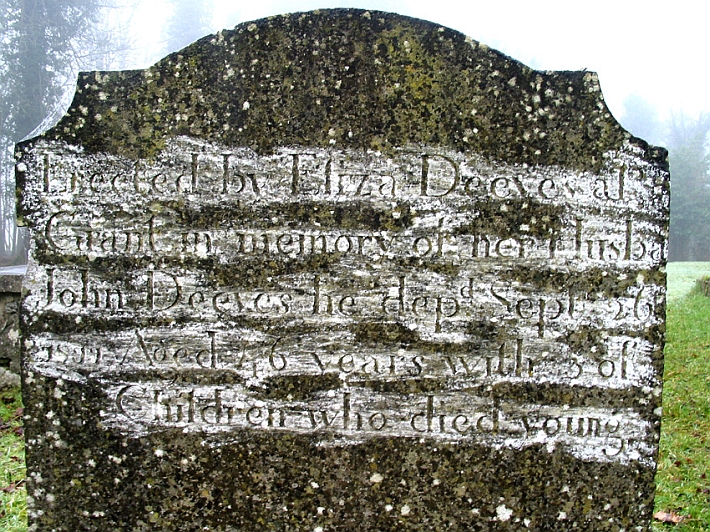 Erected by Eliza Deeves als
Grant in memory of her Husba
John Deeves he depd. Septr. 26
Aged 46 years with 3 of
Children who died young